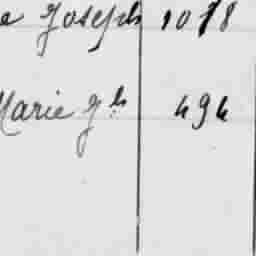 e Joseph 1018
Marie Jh 494